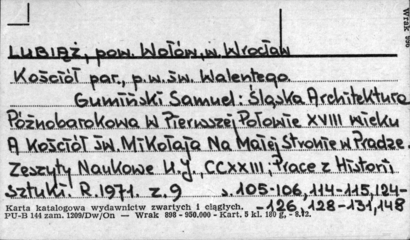 LUBIĄŻ, pow. Wołów, w. Wrocław
Kościół par., p.w. św. Walentego
Gumiński Samuel: Śląska Architektura
Późnobarokowa w Pierwszej Połowie XVIII wieku
A Kościół św. Mikołaja Na Małej Stronie w Pradze.
Zeszyty Naukowe U.J., CCXXIII; Prace z Historii
Sztuki. R.1971. z.9 s.105-106,114-115,124-
-126,128-131,148
Karta katalogowa wydawnictw zwartych i ciągłych.
PU-B 144 zam. 1209/Dw/On — Wrak 898 - 950.000 - Kart. 5 kl. 180 g, - 8.12.